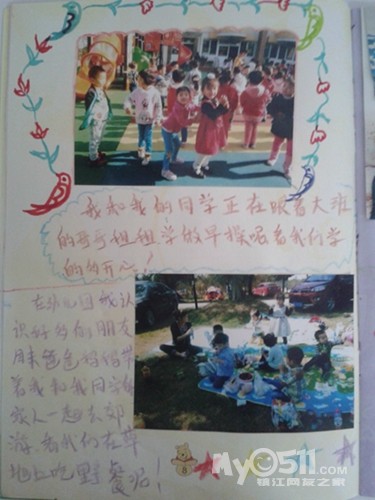 我和我们同学正在跟着大班
的哥哥姐姐学做早操呢看我们学
的多开心！
在幼儿园我认
识好多的朋友
周末爸爸妈妈带
着我和我同学
家人一起去郊
游 看我们在草
地上吃野餐呢！
My0511.com
镇江网友之家